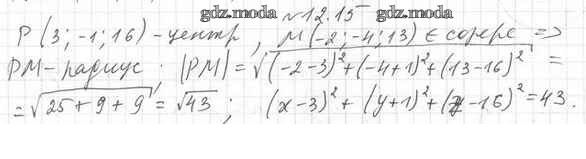 gdz.moda
gdz.moda
№12.15
P (3; -1; 16) - центр, M (-2; -4; 13) ∈ сфере =>
PM - радиус; |PM| = √((-2-3)² + (-4+1)² + (13-16)²) =
= √(25 + 9 + 9) = √43; (x-3)² + (y+1)² + (z-16)² = 43.